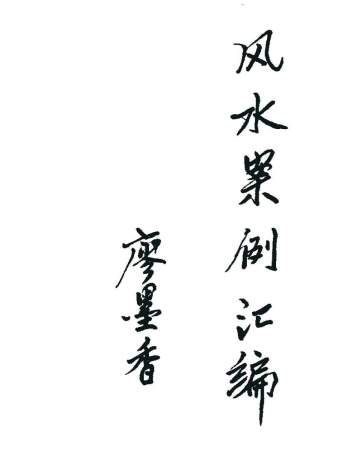 风水案例汇编
廖墨香